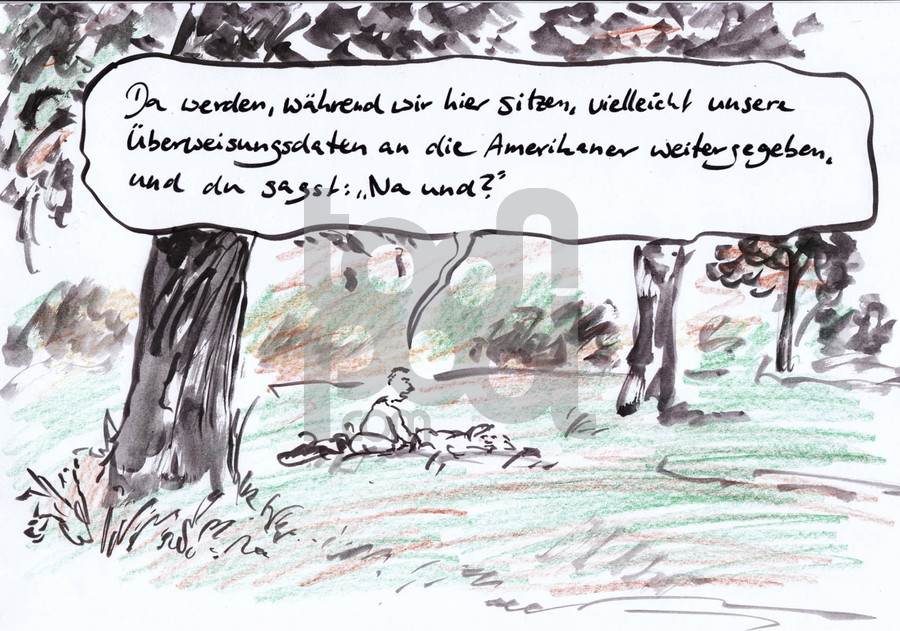 Da werden, während wir hier sitzen, vielleicht unsere
Überweisungsdaten an die Amerikaner weitergegeben,
und du sagst: „Na und?"
toonpool
.com